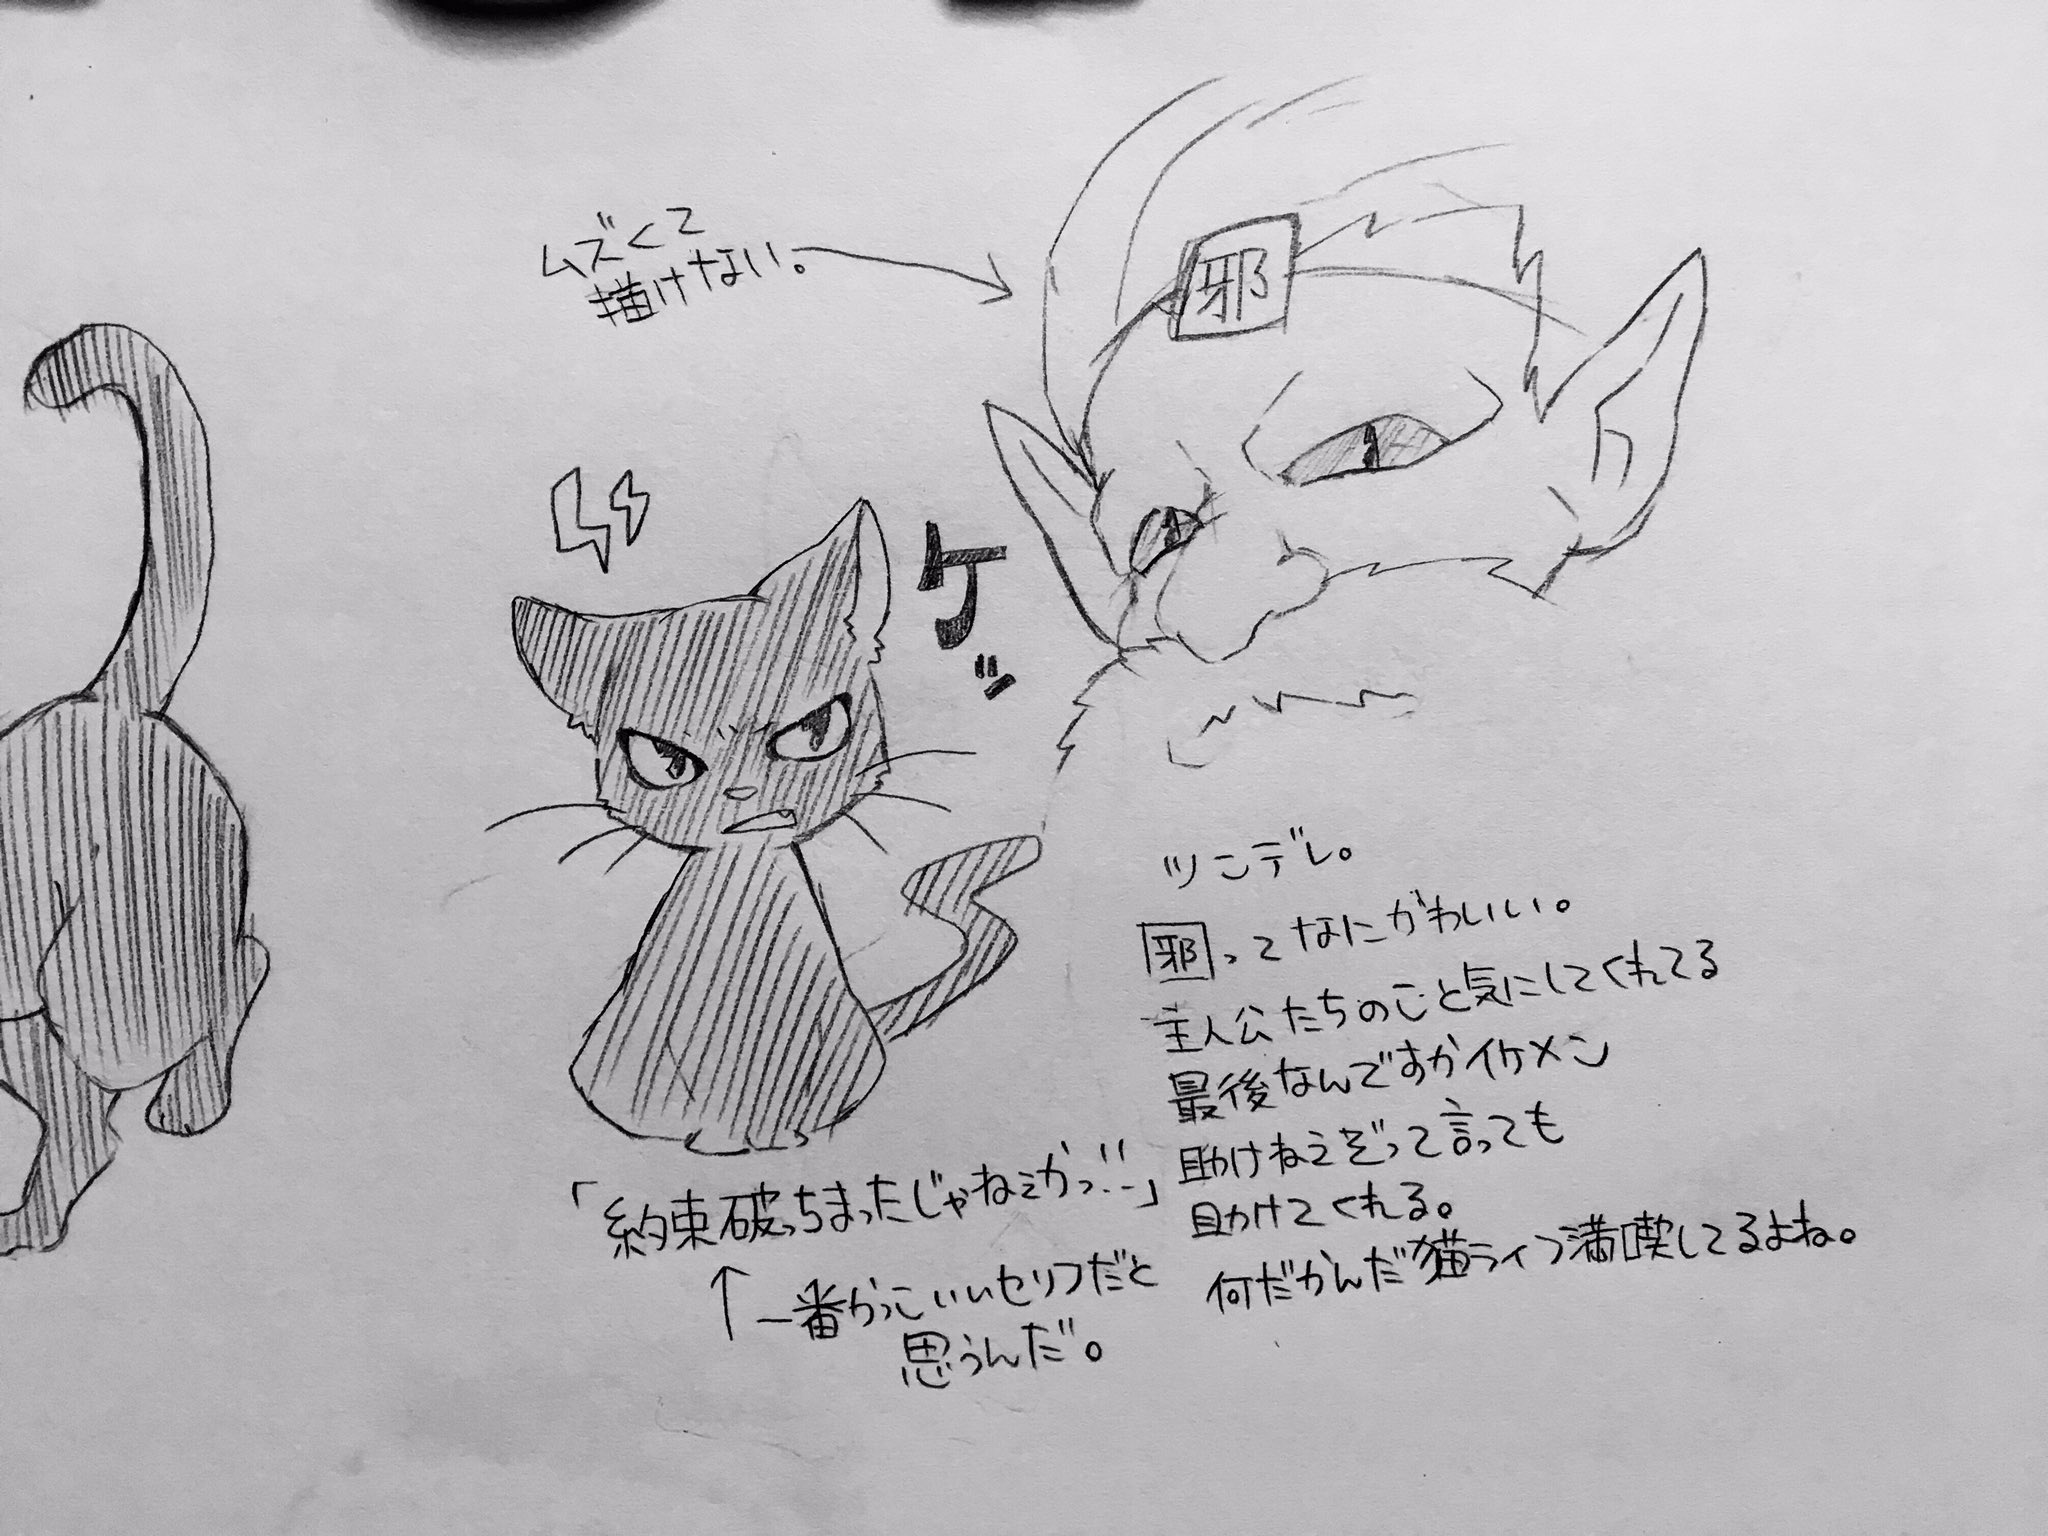 ムズくて
描けない。
邪
ケッ
ツンデレ。
邪ってなにかわいい。
主人公たちのこと気にしてくれてる
最後なんですかイケメン
助けねえぞって言っても
助けてくれる。
何だかんだ猫ライフ満喫してるよね。
「約束破っちまったじゃねぇかっ…!!」
↑一番かっこいいセリフだと
思うんだ。